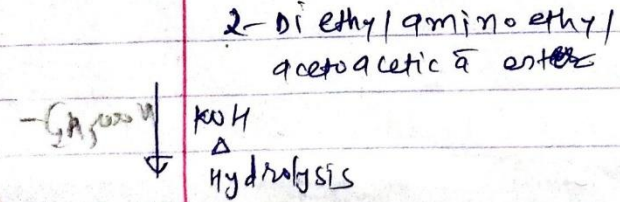 2-Diethylaminoethyl
acetoacetic a ester
-C₂H₅COOH KOH
Δ
Hydrolysis